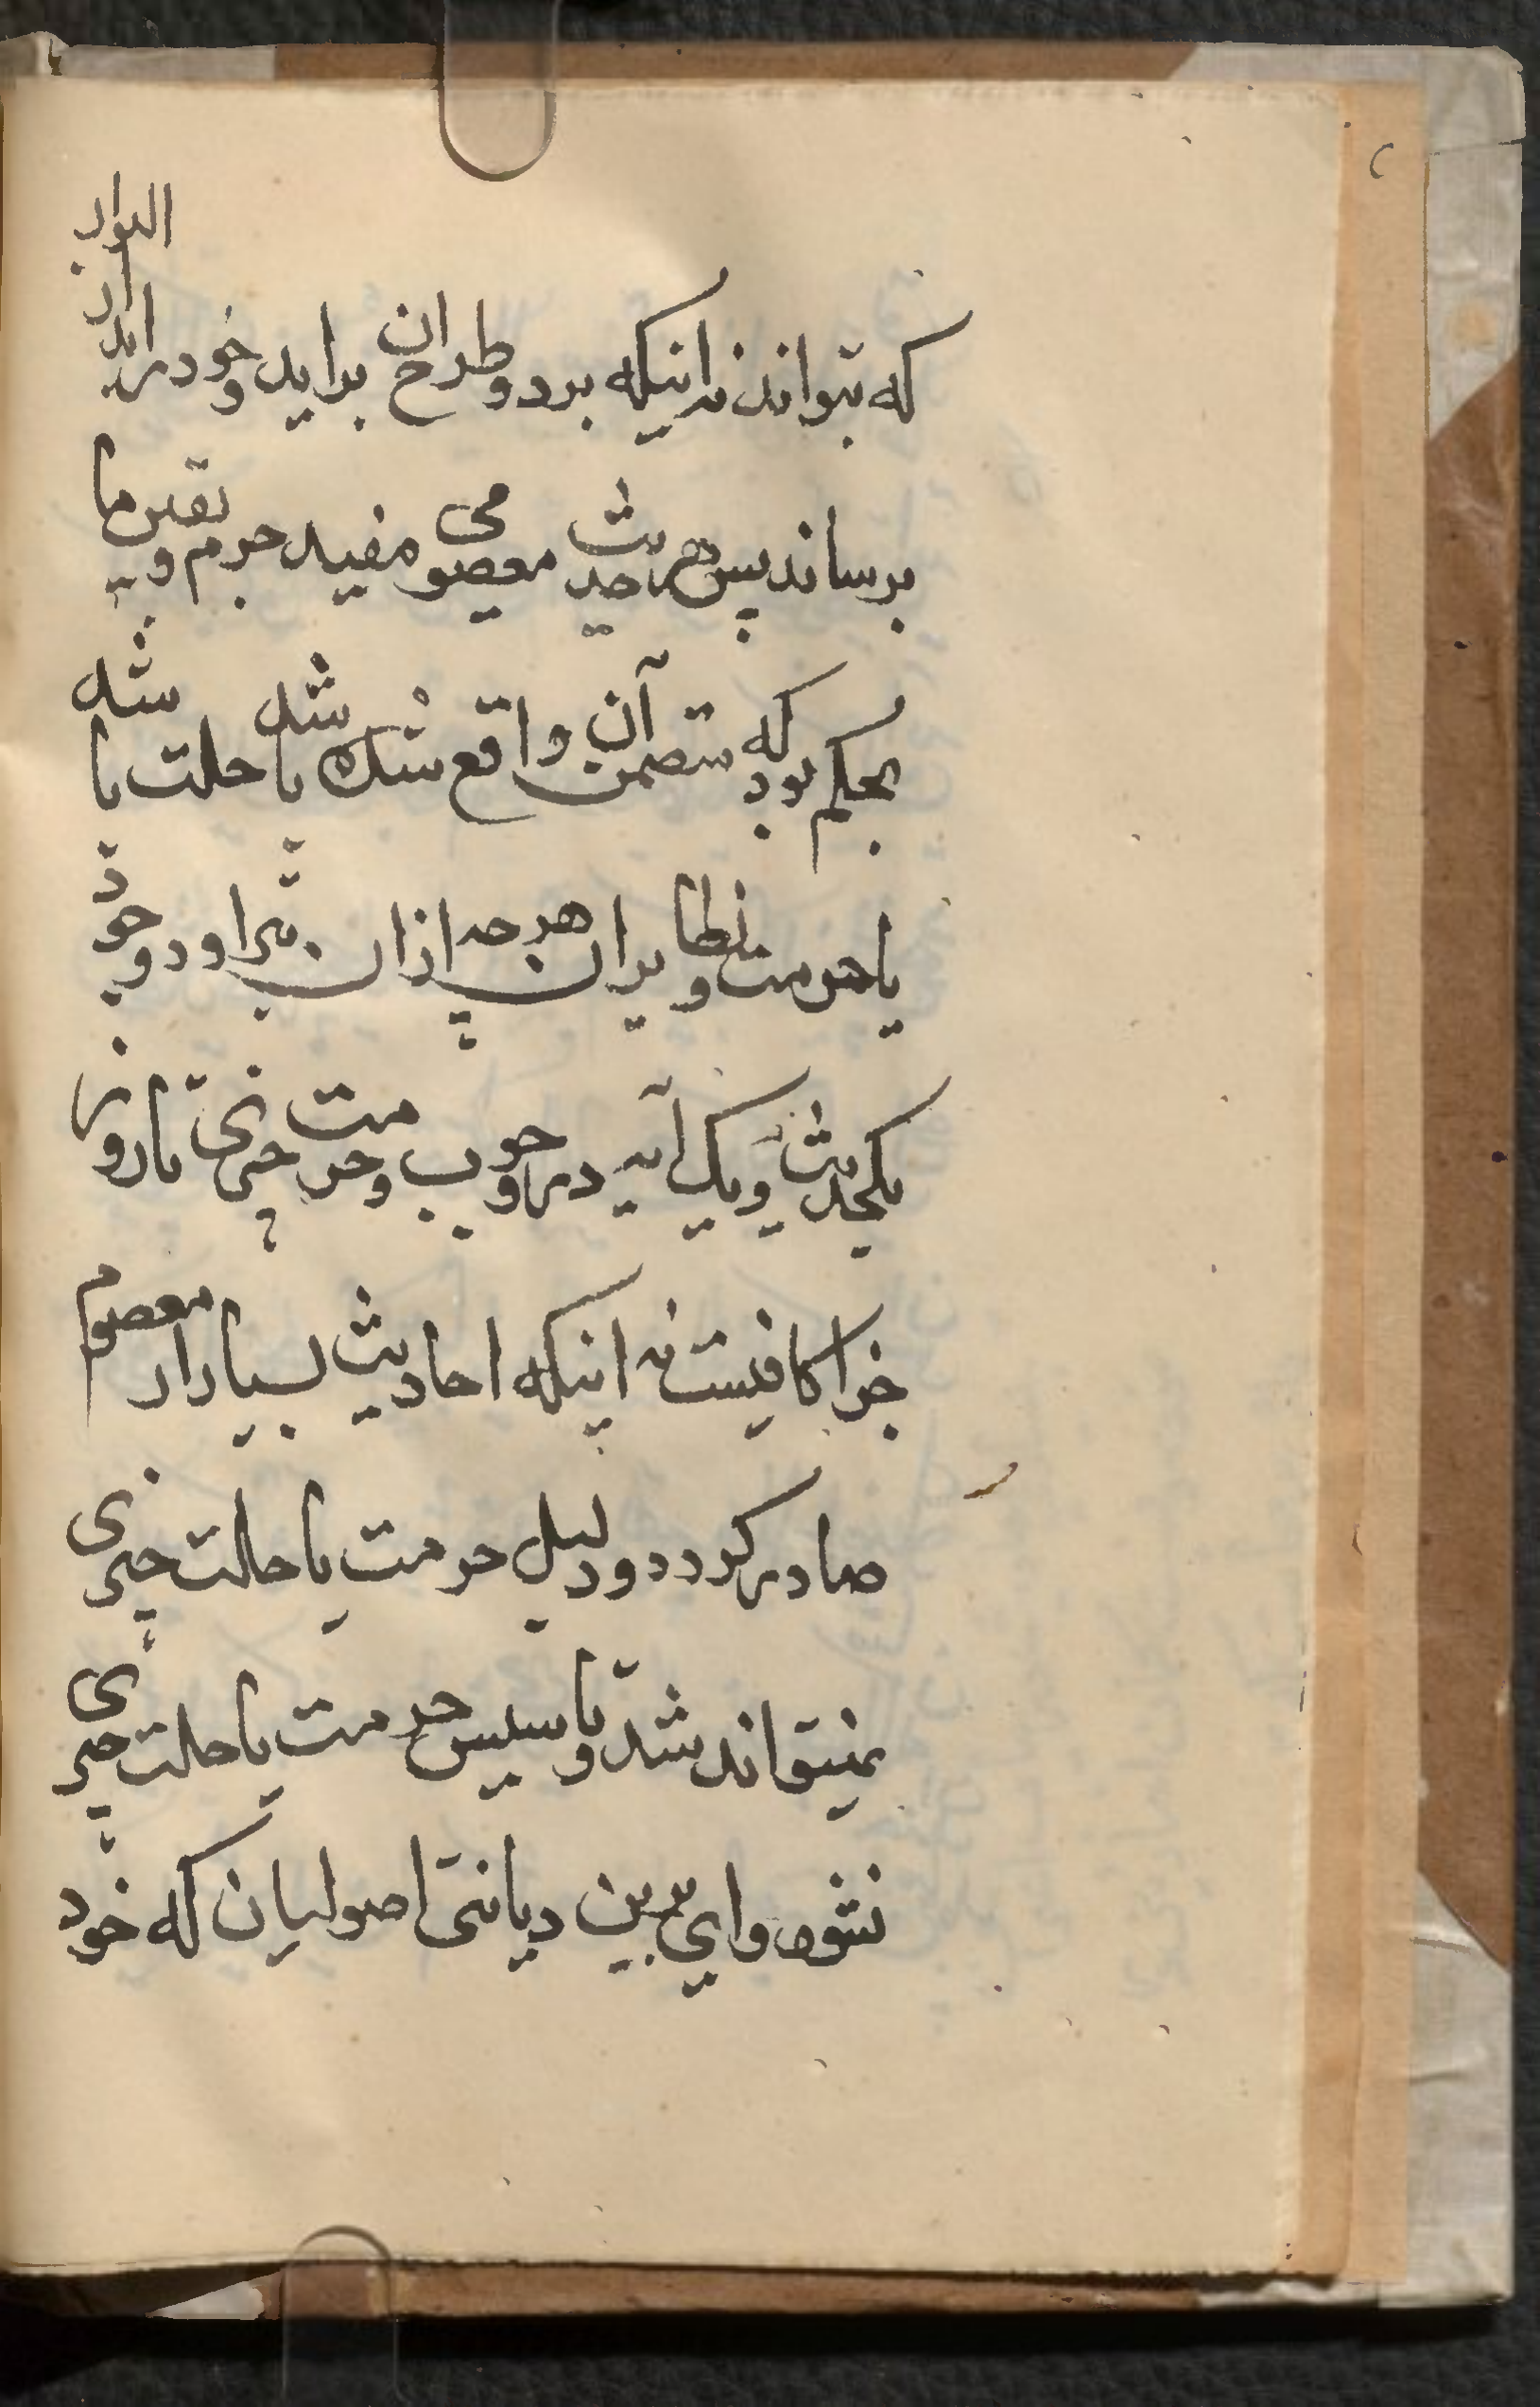 که بتواند نه اینکه برد و طرح ان براید و خود در
برساند پس هر حدیث معصومی مفید جزم و یقین ما
بحکم بود که متضمن آن واقع شده باشد یا حلت باشد
یا حرمت و نظایر ان هر چه ازان بتراود و خود
یکحدیث و یک آیه در وجوب و حرمت چیزی تا روز
جزا کافیست نه اینکه احادیث بسیار از معصوم
صادر کردد و دلیل حرمت یا حالت چیزی
نمیتواند شد و تاسیس حرمت یا حلت چیزی
نشود وای برین دیانتی اصولیان که خود